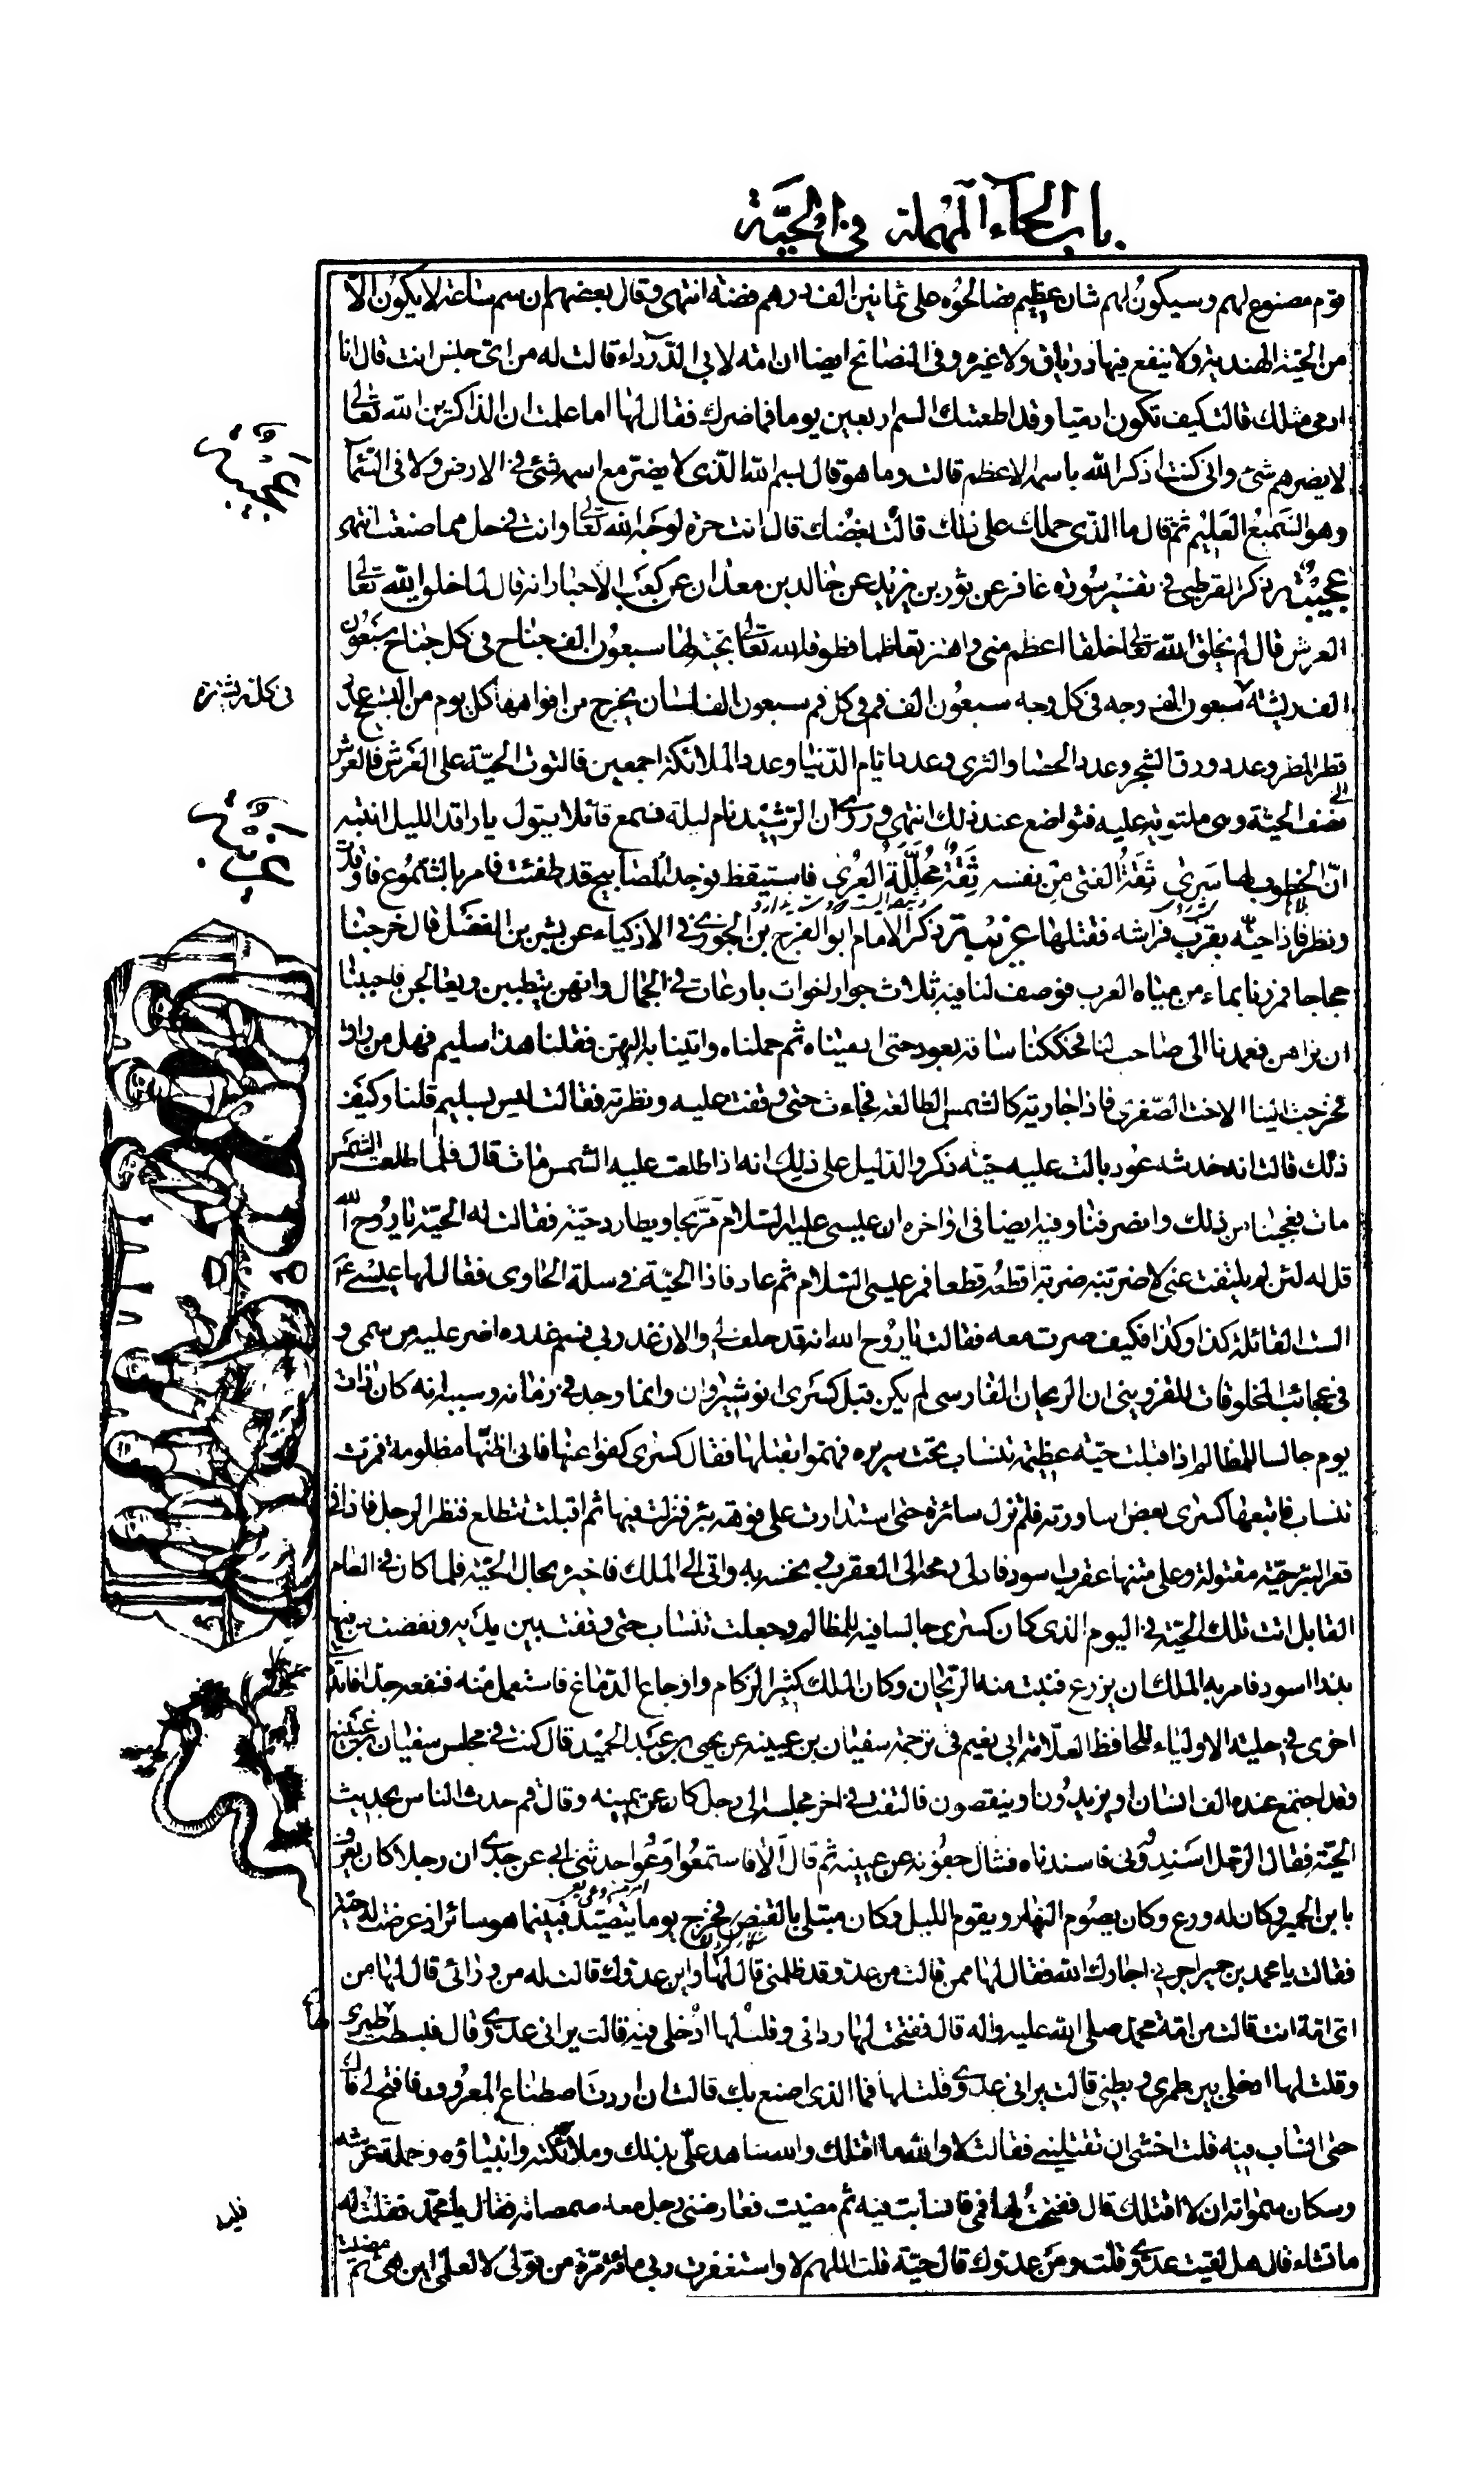 باب الحآء المهملة في الحيّة
قوم مصنوع لهم وسيكون لهم شان عظيم فصالحوه على ثمانين الف درهم فضة انتهى وقال بعضهم ان سم ساعة لا يكون الا
من الحيّة الهندية ولا ينفع فيها درياق ولا غيره وفى النصائح ايضا ان امة لابى الدّرداء قالت له من اى جنس انت قال انا
ادمى مثلك قالت كيف تكون ادميا وقد اطعمتك السم اربعين يوما فما ضرك فقال لها اما علمت ان الذاكرين الله تعالى
لا يضرهم شئ وانى كنت اذكر الله باسمه الاعظم قالت وما هو قال بسم الله الذى لا يضرّ مع اسمه شئ فى الارض ولا فى السّماء
وهو السّميع العليم ثم قال ما الذى حملك على ذلك قالت بغضك قال انت حرة لوجه الله تعالى وانت فى حل مما صنعت انتهى
عجيبة ذكر القرطبى فى تفسير سورة غافر عن ثور بن يزيد عن خالد بن معدان عن كعب الاحبار انه قال لما خلق الله تعالى
العرش قال لم يخلق الله تعالى خلقا اعظم منى واهتز تعاظما فطوقه الله تعالى بحية لها سبعون الف جناح فى كل جناح سبعون
الف ريشة سبعون الف وجه فى كل وجه سبعون الف فم فى كل فم سبعون الف لسان يخرج من افواهها كل يوم من التسبيح عدد
فى كل ريشة
قطر المطر وعدد ورق الشجر وعدد الحصا والثرى وعدد ايام الدّنيا وعدد الملائكة اجمعين فالتوت الحيّة على العرش فالعرش
الى نصف الحيّة وهى ملتوية عليه فتواضع عند ذلك انتهى وروى ان الرّشيد نام ليلة فسمع قائلا يقول يا راقد الليل انتبه
انّ الخطوب لها سرى ثقة الفتى من نفسه ثقة محلّلة العرى فاستيقظ فوجد المصابيح قد طفئت فامر بالشموع فاوقدت
ونظر فاذا حيّة بقرب فراشه فقتلها غريبة ذكر الامام ابو الفرج بن الجوزى فى الاذكياء عن بشر بن الفضل قال خرجنا
حجاجا فمررنا بماء من مياه العرب فوصف لنا فيه ثلاث جوار اخوات بارعات فى الجمال وانهن يتطببن ويعالجن فاحببنا
ان نراهن فعمدنا الى صاحب لنا فحككنا ساقه بعود حتى ادميناه ثم حملناه واتينا به اليهن فقلنا هذا سليم فهل من راق
فخرجت الينا الاخت الصغرى فاذا جارية كالشمس الطالعة فجاءت حتى وقفت عليه ونظرته فقالت ليس بسليم قلنا وكيف
ذلك قالت انه خدشه عود بالت عليه حيّة ذكر والدليل على ذلك انه اذا طلعت عليه الشمس مات قال فلما طلعت الشمس
مات فعجبنا من ذلك وانصرفنا وفيه ايضا فى اواخره ان عيسى عليه السّلام مرّ بحاو يطارد حيّة فقالت له الحيّة يا روح الله
قل له لئن لم يلتفت عنى لاضربنه ضربة اقطعه قطعا فمر عيسى السّلام ثم عاد فاذا الحيّة فى سلة الحاوى فقال لها عيسى
الست القائلة كذا وكذا فكيف صرت معه فقالت يا روح الله انه قد حلف لى والان غدر بى فسم غدره اضر عليه من سمى و
فى عجائب المخلوقات للقزوينى ان الريحان الفارسى لم يكن قبل كسرى انوشيروان وانما وجد فى زمانه وسببه انه كان ذات
يوم جالسا للمظالم اذ اقبلت حيّة عظيمة تنساب تحت سريره فهموا بقتلها فقال كسرى كفوا عنها فانى اظنّها مظلومة فمرت
تنساب فاتبعها كسرى بعض اساورته فلم تزل سائرة حتى استدارت على فوهة بئر فنزلت فيها ثم اقبلت تتطلع فنظر الرجل فاذا فى
قعر البئر حيّة مقتولة وعلى متنها عقرب اسود فادلى رمحه الى العقرب ونخسه به واتى الى الملك فاخبره بحال الحيّة فلما كان فى العام
القابل اتت تلك الحيّة فى اليوم الذى كان كسرى جالسا فيه للمظالم وجعلت تنساب حتى وقفت بين يديه ونفضت من فيها
بذرا اسود فامر به الملك ان يزرع فنبت منه الرّيحان وكان الملك كثير الزكام واوجاع الدّماغ فاستعمل منه فنفعه جدّا فائدة
اخرى فى حلية الاولياء للحافظ العلّامة ابى نعيم فى ترجمة سفيان بن عيينة عن يحيى بن عبد الحميد قال كنت فى مجلس سفيان بن عيينة
وقد اجتمع عنده الف انسان او يزيدون او ينقصون فالتفت فى اخر مجلسه الى رجل كان عن يمينه وقال قم حدث الناس بحديث
الحيّة فقال الرّجل اسندونى فاسندناه فشال جفونه عن عينيه ثم قال الا فاستمعوا وعوا حدثنى ابى عن جدى ان رجلا كان يعرف
بابن الحمير وكان له ورع وكان يصوم النهار ويقوم الليل وكان مبتلى بالقنص فخرج يوما يتصيّد فبينما هو سائر اذ عرضت له حيّة
فقالت يا محمد بن حمير اجرنى اجارك الله فقال لها ممن قالت من عدو قد ظلمنى قال لها واين عدوك قالت له من ورائى قال لها من
اى امة انت قالت من امة محمد صلى الله عليه واله قال ففتحت لها ردائى وقلت لها ادخلى فيه قالت يرانى عدوى قال فبسطت طمرى
وقلت لها ادخلى بين طمرى وبطنى قالت يرانى عدوى قلت لها فما الذى اصنع بك قالت ان اردت اصطناع المعروف فافتح لى فاك
حتى انساب فيه قلت اخشى ان تقتلينى فقالت لا والله ما اقتلك والله شاهد علىّ بذلك وملائكته وانبياؤه وحملة عرشه
وسكان سمواته ان لا اقتلك قال ففتحت لها فمى فانسابت فيه ثم مضيت فعارضنى رجل معه صمصامة فقال يا محمّد فقلت له
ما تشاء قال هل لقيت عدوى قلت ومن عدوك قال حيّة قلت اللهم لا واستغفرت ربى مائة مرّة من قولى لا لعلمى اين هى ثم مضيت
عجيبة
غريبة